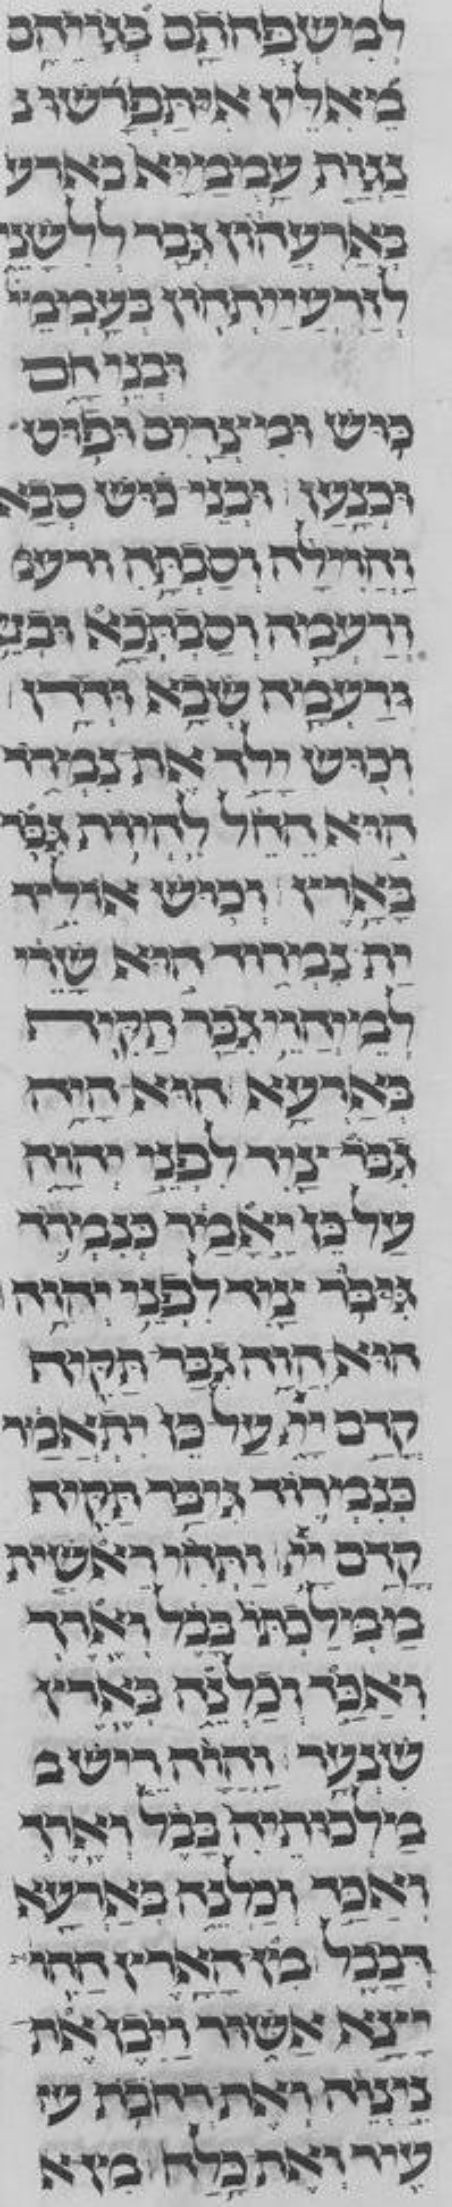 לְמִישְׁפְּחֹתָם בְּגוֹיֵהֶם
מֵאִלֵין אִיתַפְרַשׁוּ נ
נַגְוַת עַמְמַיָא בְאַרע
בְּאַרְעֲהוֹן גְבַר לְלִשָׁנֵי
לְזַרְעֲיַיתְהוֹן בְּעַמְמֵי
וּבְנֵי חָם
כּוּשׁ וּמִיצְרַיִם וּפוּט
וּכְנָעַן וּבְנֵי כוּשׁ סְבָא
וַחֲוִילָה וְסַבְתָּה ורעמ
וְרַעְמָה וְסַבְתְּכָא וּבְנֵ
וְרַעְמָה שְׁבָא וּדְדָן
וְכוּשׁ יָלַד אֶת נִמְרֹד
הוּא הֵחֵל לִהְיוֹת גִּבֹּר
בָּאָרֶץ וְכוּשׁ אוֹלֵיד
יַת נִמְרוֹד הוּא שָׁרֵי
לְמֵיהֱוֵי גִבַּר תַּקִּיף
בְּאַרְעָא הוּא הָיָה
גִבֹּר צַיִד לִפְנֵי יְהוָה
עַל כֵּן יֵאָמַר כְּנִמְרֹד
גִּיבֹּר צַיִד לִפְנֵי יְהוָה
הוּא הֲוָה גִבַּר תַּקִּיף
קֳדָם יְיָ עַל כֵּן יִתְאֲמַר
כְּנִמְרוֹד גִּיבַּר תַּקִּיף
קֳדָם יְיָ וַתְּהִי רֵאשִׁית
מַמְלַכְתּוֹ בָּבֶל וְאֶרֶךְ
וְאַכַּד וְכַלְנֵה בְּאֶרֶץ
שִׁנְעָר וַהֲוָה רֵישׁ מ
מַלְכוּתֵיהּ בָּבֶל וְאֶרֶךְ
וְאַכַּד וְכַלְנֵה בְּאַרְעָא
דְּבָבֶל מִן הָאָרֶץ הַהִו
יָצָא אַשּׁוּר וַיִּבֶן אֶת
נִינְוֵה וְאֶת רְחֹבֹת עי
עִיר וְאֶת כָּלַח מִן א